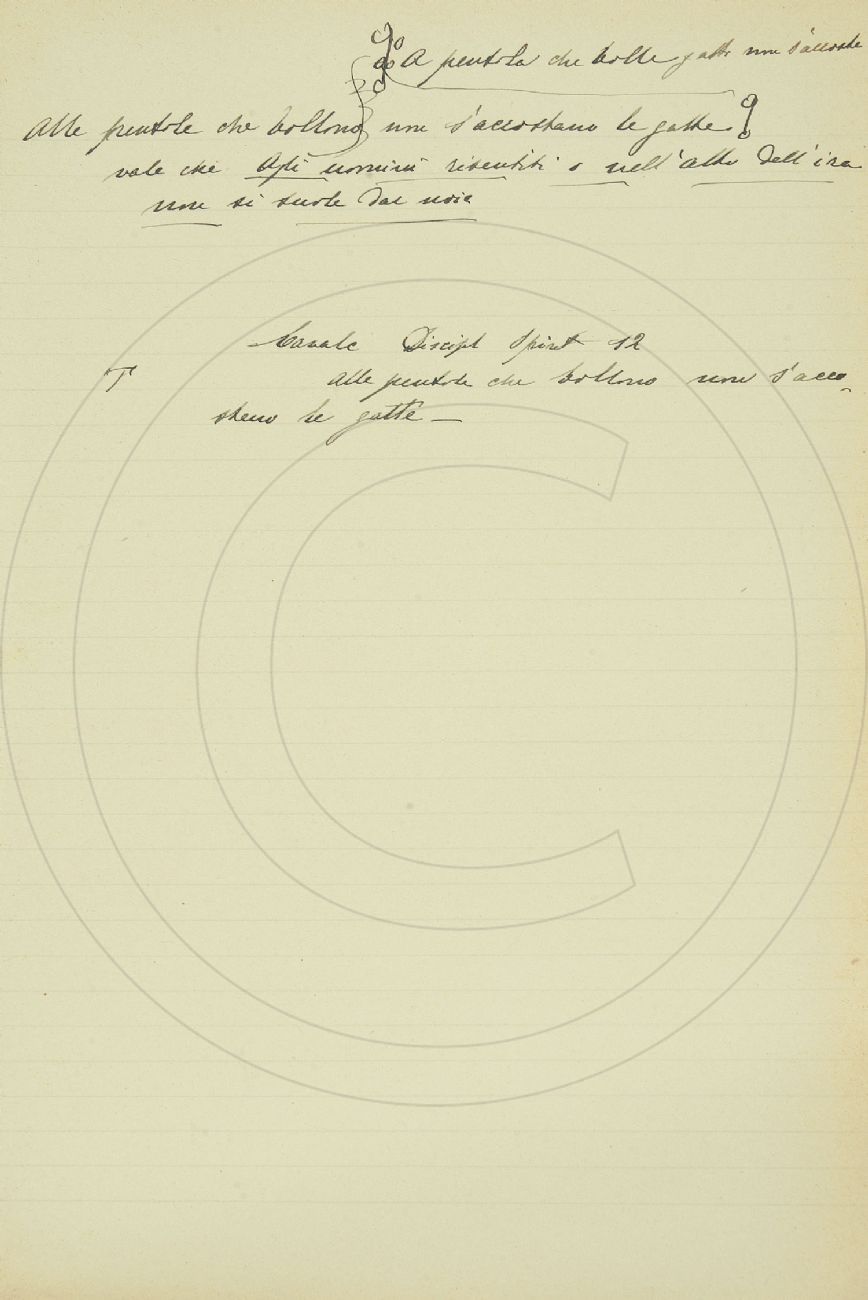 A pentola che bolle gatta non s'accosta
Alle pentole che bollono non s'accostano le gatte.
vale che Agli uomini risentiti o nell'atto dell'ira
non si suole dar noia
Cavalc Discipl Spirit 12
T alle pentole che bollono non s'acco-
stano le gatte —